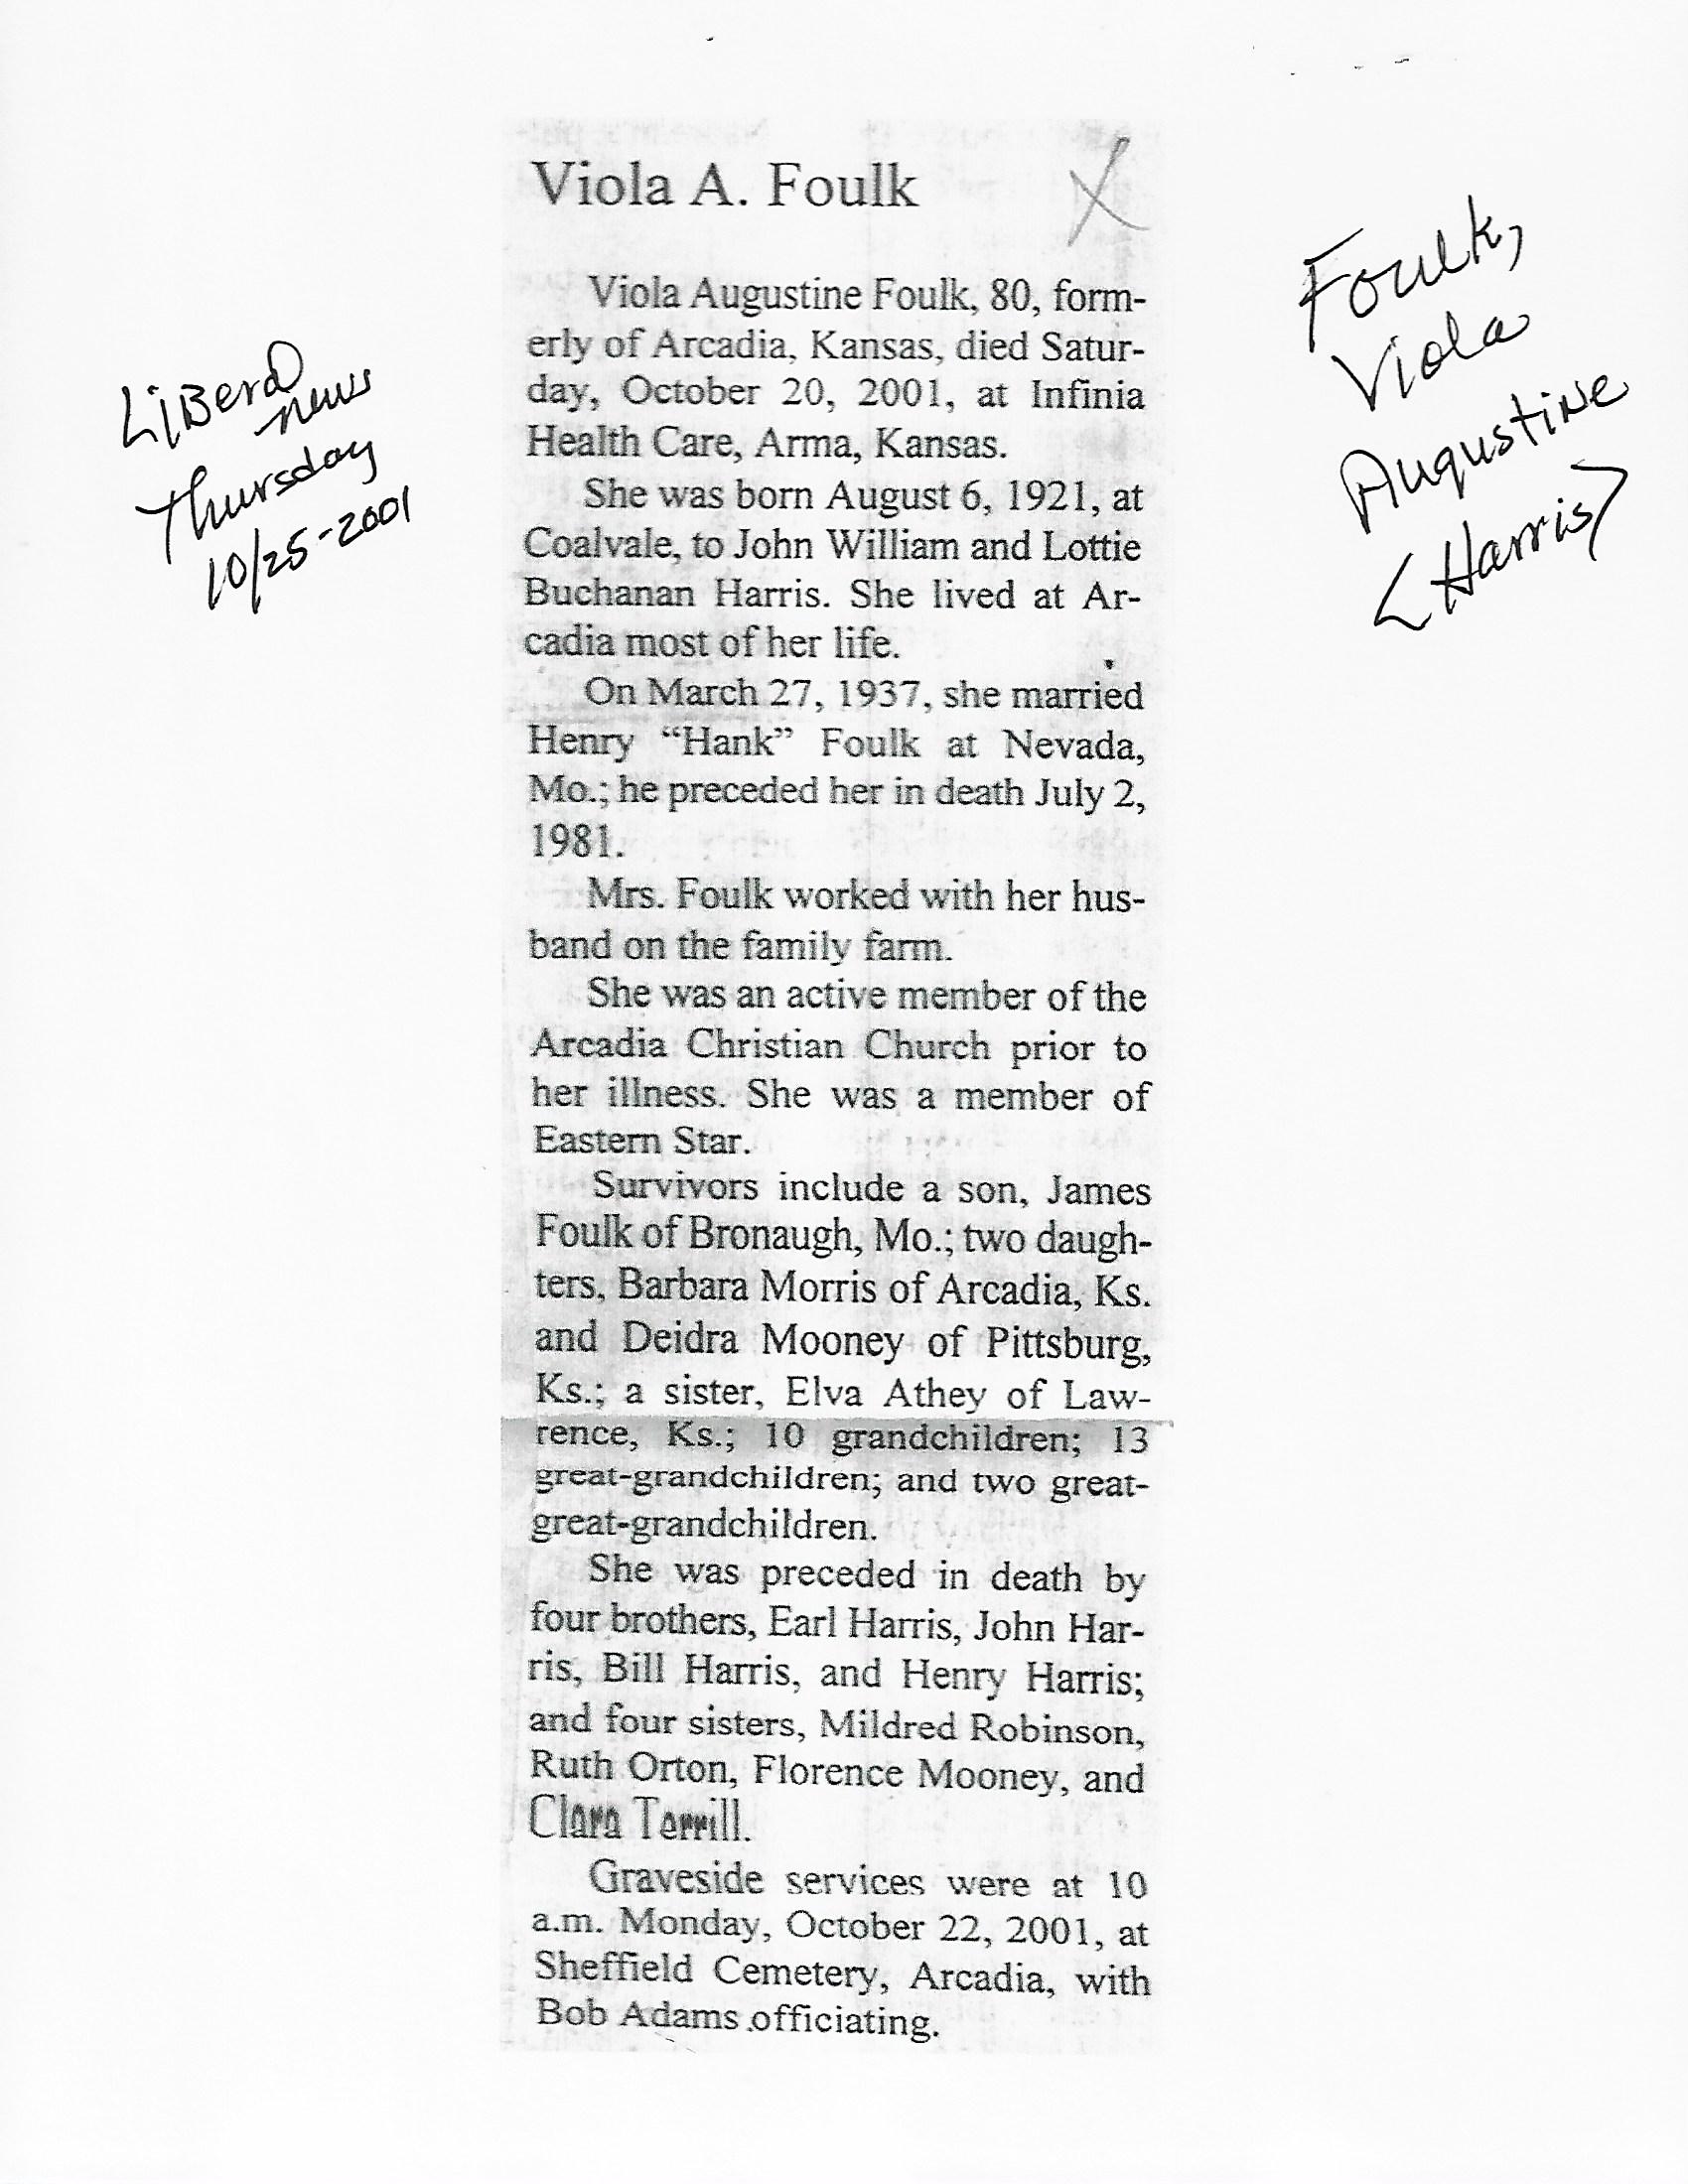 Viola A. Foulk
X
Foulk,
Viola
Augustine
<Harris>
LiBeral
news
Thursday
10/25-2001
Viola Augustine Foulk, 80, form-
erly of Arcadia, Kansas, died Satur-
day, October 20, 2001, at Infinia
Health Care, Arma, Kansas.
She was born August 6, 1921, at
Coalvale, to John William and Lottie
Buchanan Harris. She lived at Ar-
cadia most of her life.
On March 27, 1937, she married
Henry “Hank” Foulk at Nevada,
Mo.; he preceded her in death July 2,
1981.
Mrs. Foulk worked with her hus-
band on the family farm.
She was an active member of the
Arcadia Christian Church prior to
her illness. She was a member of
Eastern Star.
Survivors include a son, James
Foulk of Bronaugh, Mo.; two daugh-
ters, Barbara Morris of Arcadia, Ks.
and Deidra Mooney of Pittsburg,
Ks.; a sister, Elva Athey of Law-
rence, Ks.; 10 grandchildren; 13
great-grandchildren; and two great-
great-grandchildren.
She was preceded in death by
four brothers, Earl Harris, John Har-
ris, Bill Harris, and Henry Harris;
and four sisters, Mildred Robinson,
Ruth Orton, Florence Mooney, and
Clara Terrill.
Graveside services were at 10
a.m. Monday, October 22, 2001, at
Sheffield Cemetery, Arcadia, with
Bob Adams officiating.